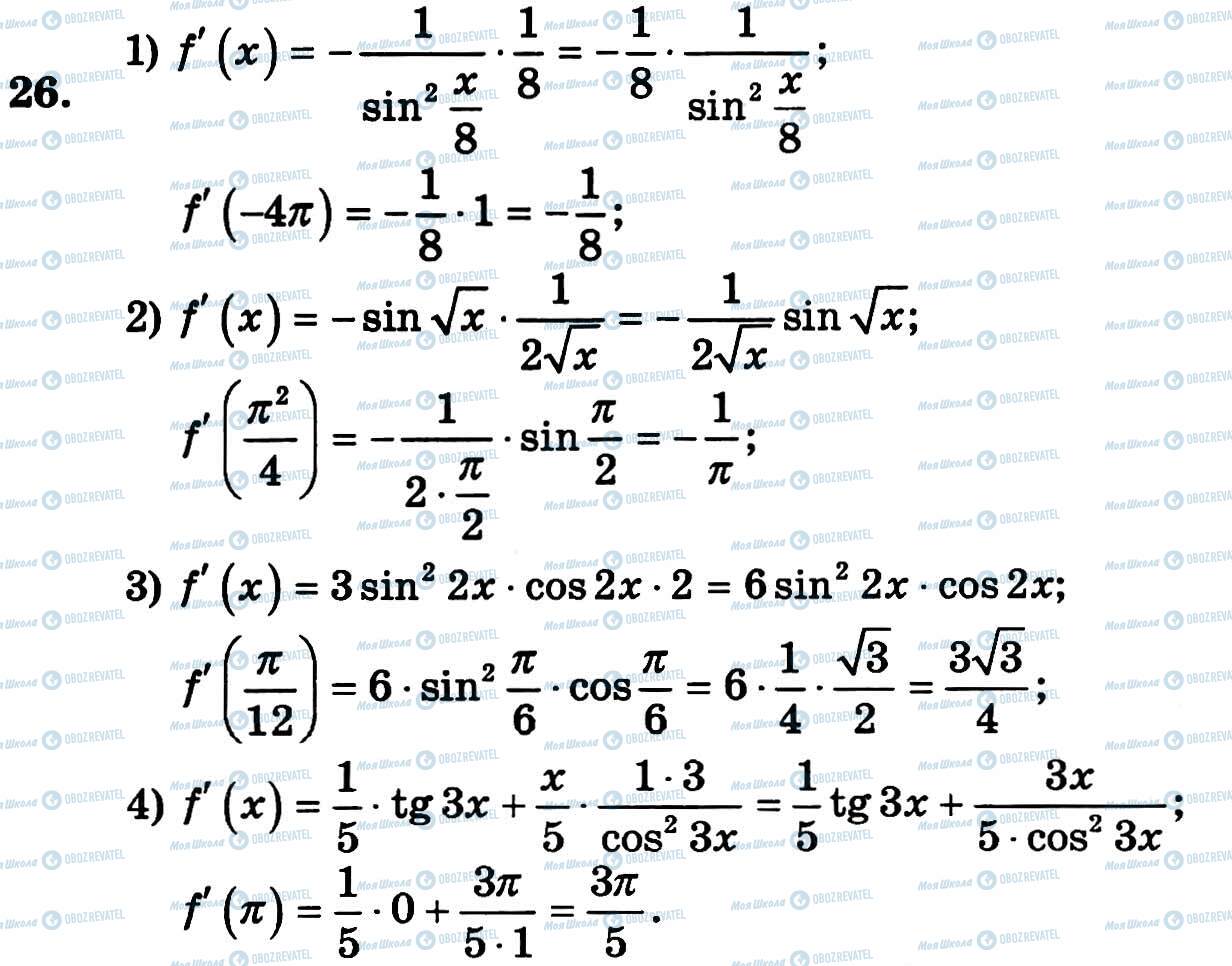 26.
1) f′(x) = −1/(sin² x/8) · 1/8 = −1/8 · 1/(sin² x/8);
f′(−4π) = −1/8 · 1 = −1/8;
2) f′(x) = −sin √x · 1/(2√x) = −1/(2√x) sin √x;
f′(π²/4) = −1/(2 · π/2) · sin π/2 = −1/π;
3) f′(x) = 3 sin² 2x · cos 2x · 2 = 6 sin² 2x · cos 2x;
f′(π/12) = 6 · sin² π/6 · cos π/6 = 6 · 1/4 · √3/2 = 3√3/4;
4) f′(x) = 1/5 · tg 3x + x/5 · (1 · 3)/(cos² 3x) = 1/5 tg 3x + 3x/(5 · cos² 3x);
f′(π) = 1/5 · 0 + 3π/(5 · 1) = 3π/5.
МояШкола OBOZREVATEL